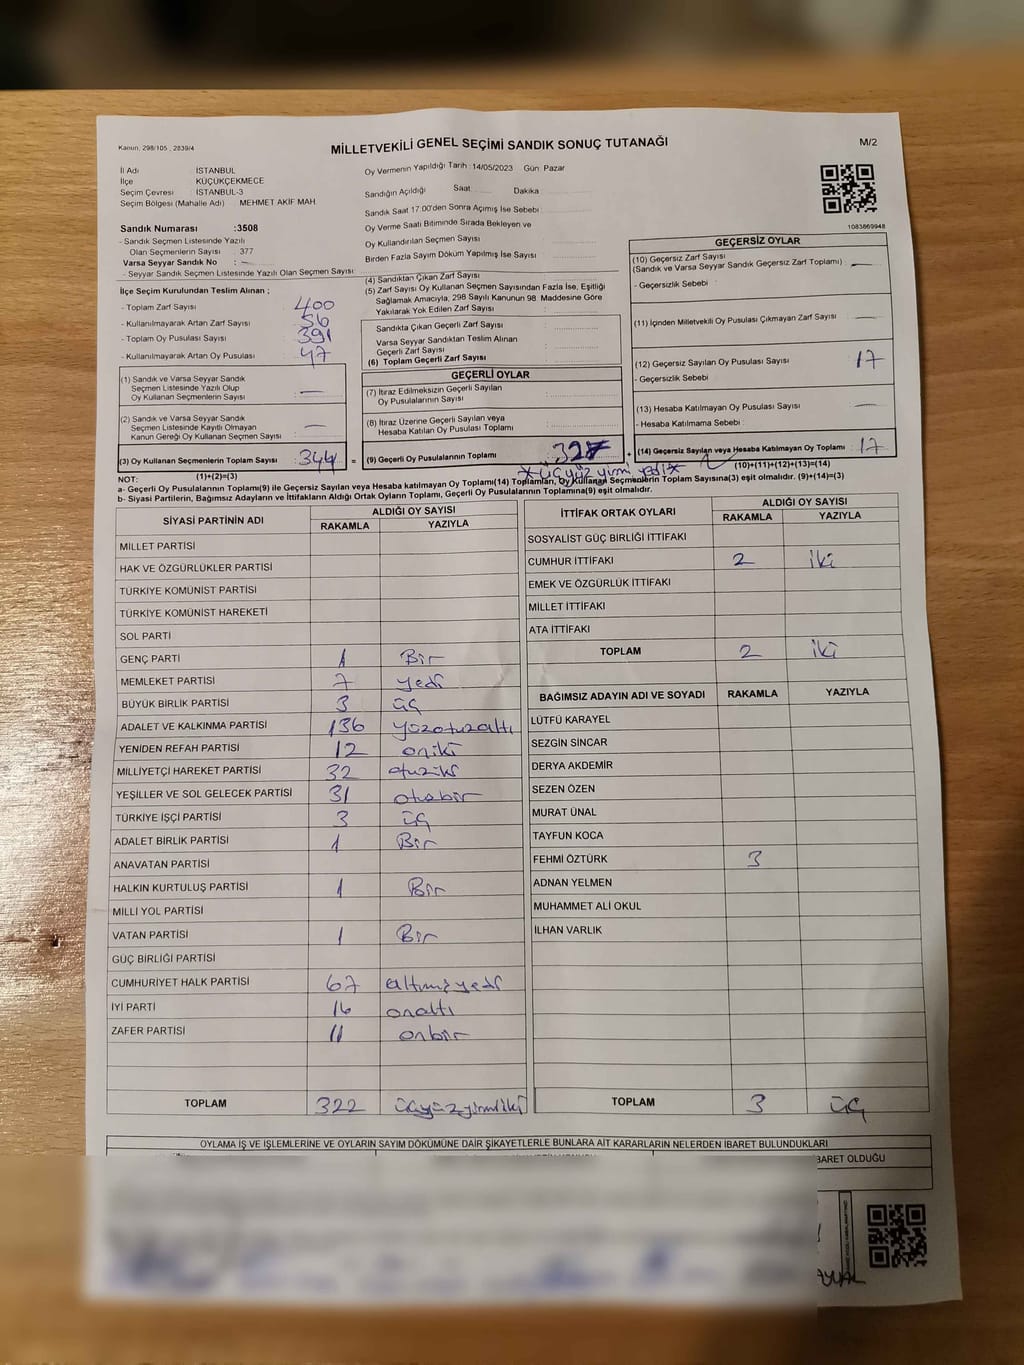 Kanun: 298/105 , 2839/4
MİLLETVEKİLİ GENEL SEÇİMİ SANDIK SONUÇ TUTANAĞI
M/2
İl Adı İSTANBUL
İlçe KÜÇÜKÇEKMECE
Seçim Çevresi : İSTANBUL-3
Seçim Bölgesi (Mahalle Adı) : MEHMET AKİF MAH.
Sandık Numarası :3508
- Sandık Seçmen Listesinde Yazılı
Olan Seçmenlerin Sayısı : 377
Varsa Seyyar Sandık No : —
- Seyyar Sandık Seçmen Listesinde Yazılı Olan Seçmen Sayısı:
Oy Vermenin Yapıldığı Tarih :14/05/2023 Gün: Pazar
Sandığın Açıldığı Saat Dakika
Sandık Saat 17:00'den Sonra Açımış İse Sebebi :
Oy Verme Saati Bitiminde Sırada Bekleyen ve
Oy Kullandırılan Seçmen Sayısı
Birden Fazla Sayım Döküm Yapılmış İse Sayısı
1083869948
İlçe Seçim Kurulundan Teslim Alınan ;
- Toplam Zarf Sayısı : 400
- Kullanılmayarak Artan Zarf Sayısı : 56
- Toplam Oy Pusulası Sayısı : 391
- Kullanılmayarak Artan Oy Pusulası : 47
(1) Sandık ve Varsa Seyyar Sandık
Seçmen Listesinde Yazılı Olup
Oy Kullanan Seçmenlerin Sayısı : —
(2) Sandık ve Varsa Seyyar Sandık
Seçmen Listesinde Kayıtlı Olmayan
Kanun Gereği Oy Kullanan Seçmen Sayısı : —
(3) Oy Kullanan Seçmenlerin Toplam Sayısı : 344 =
(1)+(2)=(3)
(4) Sandıktan Çıkan Zarf Sayısı
(5) Zarf Sayısı Oy Kullanan Seçmen Sayısından Fazla İse, Eşitliği
Sağlamak Amacıyla, 298 Sayılı Kanunun 98. Maddesine Göre
Yakılarak Yok Edilen Zarf Sayısı :
Sandıkta Çıkan Geçerli Zarf Sayısı
Varsa Seyyar Sandıktan Teslim Alınan
Geçerli Zarf Sayısı
(6) Toplam Geçerli Zarf Sayısı
GEÇERLİ OYLAR
(7) İtiraz Edilmeksizin Geçerli Sayılan
Oy Pusulalarının Sayısı
(8) İtiraz Üzerine Geçerli Sayılan veya
Hesaba Katılan Oy Pusulası Toplamı
(9) Geçerli Oy Pusulalarının Toplamı : 327 +
* üçyüz yirmi yedi *
GEÇERSİZ OYLAR
(10) Geçersiz Zarf Sayısı
(Sandık ve Varsa Seyyar Sandık Geçersiz Zarf Toplamı) : —
- Geçersizlik Sebebi :
(11) İçinden Milletvekili Oy Pusulası Çıkmayan Zarf Sayısı : —
(12) Geçersiz Sayılan Oy Pusulası Sayısı : 17
- Geçersizlik Sebebi
(13) Hesaba Katılmayan Oy Pusulası Sayısı : —
- Hesaba Katılmama Sebebi :
(14) Geçersiz Sayılan veya Hesaba Katılmayan Oy Toplamı : 17
(10)+(11)+(12)+(13)=(14)
NOT:
a- Geçerli Oy Pusulalarının Toplamı(9) ile Geçersiz Sayılan veya Hesaba katılmayan Oy Toplamı(14) Toplamları, Oy Kullanan Seçmenlerin Toplam Sayısına(3) eşit olmalıdır. (9)+(14)=(3)
b- Siyasi Partilerin, Bağımsız Adayların ve İttifakların Aldığı Ortak Oyların Toplamı, Geçerli Oy Pusulalarının Toplamına(9) eşit olmalıdır.
SİYASİ PARTİNİN ADI ALDIĞI OY SAYISI
RAKAMLA YAZIYLA
MİLLET PARTİSİ
HAK VE ÖZGÜRLÜKLER PARTİSİ
TÜRKİYE KOMÜNİST PARTİSİ
TÜRKİYE KOMÜNİST HAREKETİ
SOL PARTİ
GENÇ PARTİ 1 Bir
MEMLEKET PARTİSİ 7 yedi
BÜYÜK BİRLİK PARTİSİ 3 üç
ADALET VE KALKINMA PARTİSİ 136 yüzotuzaltı
YENİDEN REFAH PARTİSİ 12 oniki
MİLLİYETÇİ HAREKET PARTİSİ 32 otuziki
YEŞİLLER VE SOL GELECEK PARTİSİ 31 otuzbir
TÜRKİYE İŞÇİ PARTİSİ 3 üç
ADALET BİRLİK PARTİSİ 1 Bir
ANAVATAN PARTİSİ
HALKIN KURTULUŞ PARTİSİ 1 Bir
MİLLİ YOL PARTİSİ
VATAN PARTİSİ 1 Bir
GÜÇ BİRLİĞİ PARTİSİ
CUMHURİYET HALK PARTİSİ 67 altmışyedi
İYİ PARTİ 16 onaltı
ZAFER PARTİSİ 11 onbir
TOPLAM 322 üçyüzyirmiiki
İTTİFAK ORTAK OYLARI ALDIĞI OY SAYISI
RAKAMLA YAZIYLA
SOSYALİST GÜÇ BİRLİĞİ İTTİFAKI
CUMHUR İTTİFAKI 2 iki
EMEK VE ÖZGÜRLÜK İTTİFAKI
MİLLET İTTİFAKI
ATA İTTİFAKI
TOPLAM 2 iki
BAĞIMSIZ ADAYIN ADI VE SOYADI RAKAMLA YAZIYLA
LÜTFÜ KARAYEL
SEZGİN SİNCAR
DERYA AKDEMİR
SEZEN ÖZEN
MURAT ÜNAL
TAYFUN KOCA
FEHMİ ÖZTÜRK 3
ADNAN YELMEN
MUHAMMET ALİ OKUL
İLHAN VARLIK
TOPLAM 3 üç
OYLAMA İŞ VE İŞLEMLERİNE VE OYLARIN SAYIM DÖKÜMÜNE DAİR ŞİKAYETLERLE BUNLARA AİT KARARLARIN NELERDEN İBARET BULUNDUKLARI
BARET OLDUĞU